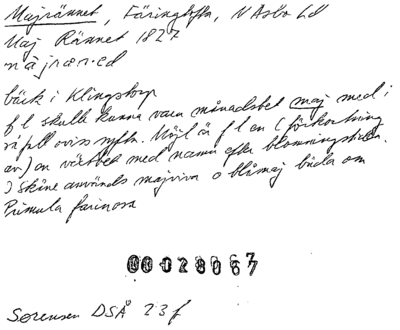 Majrännet, Färingtofta, N Åsbo hd
Maj Rännet 1827
majræn·ed
bäck i Klingstorp
f l skulle kunna vara månadsbet maj med i
så fall oviss syftn. Möjl är f l en (förkortning
av) en växtbet med namn efter blomningstiden.
I Skåne används majviva o blåmaj båda om
Primula farinosa
00028067
Sørensen DSÅ 23 f